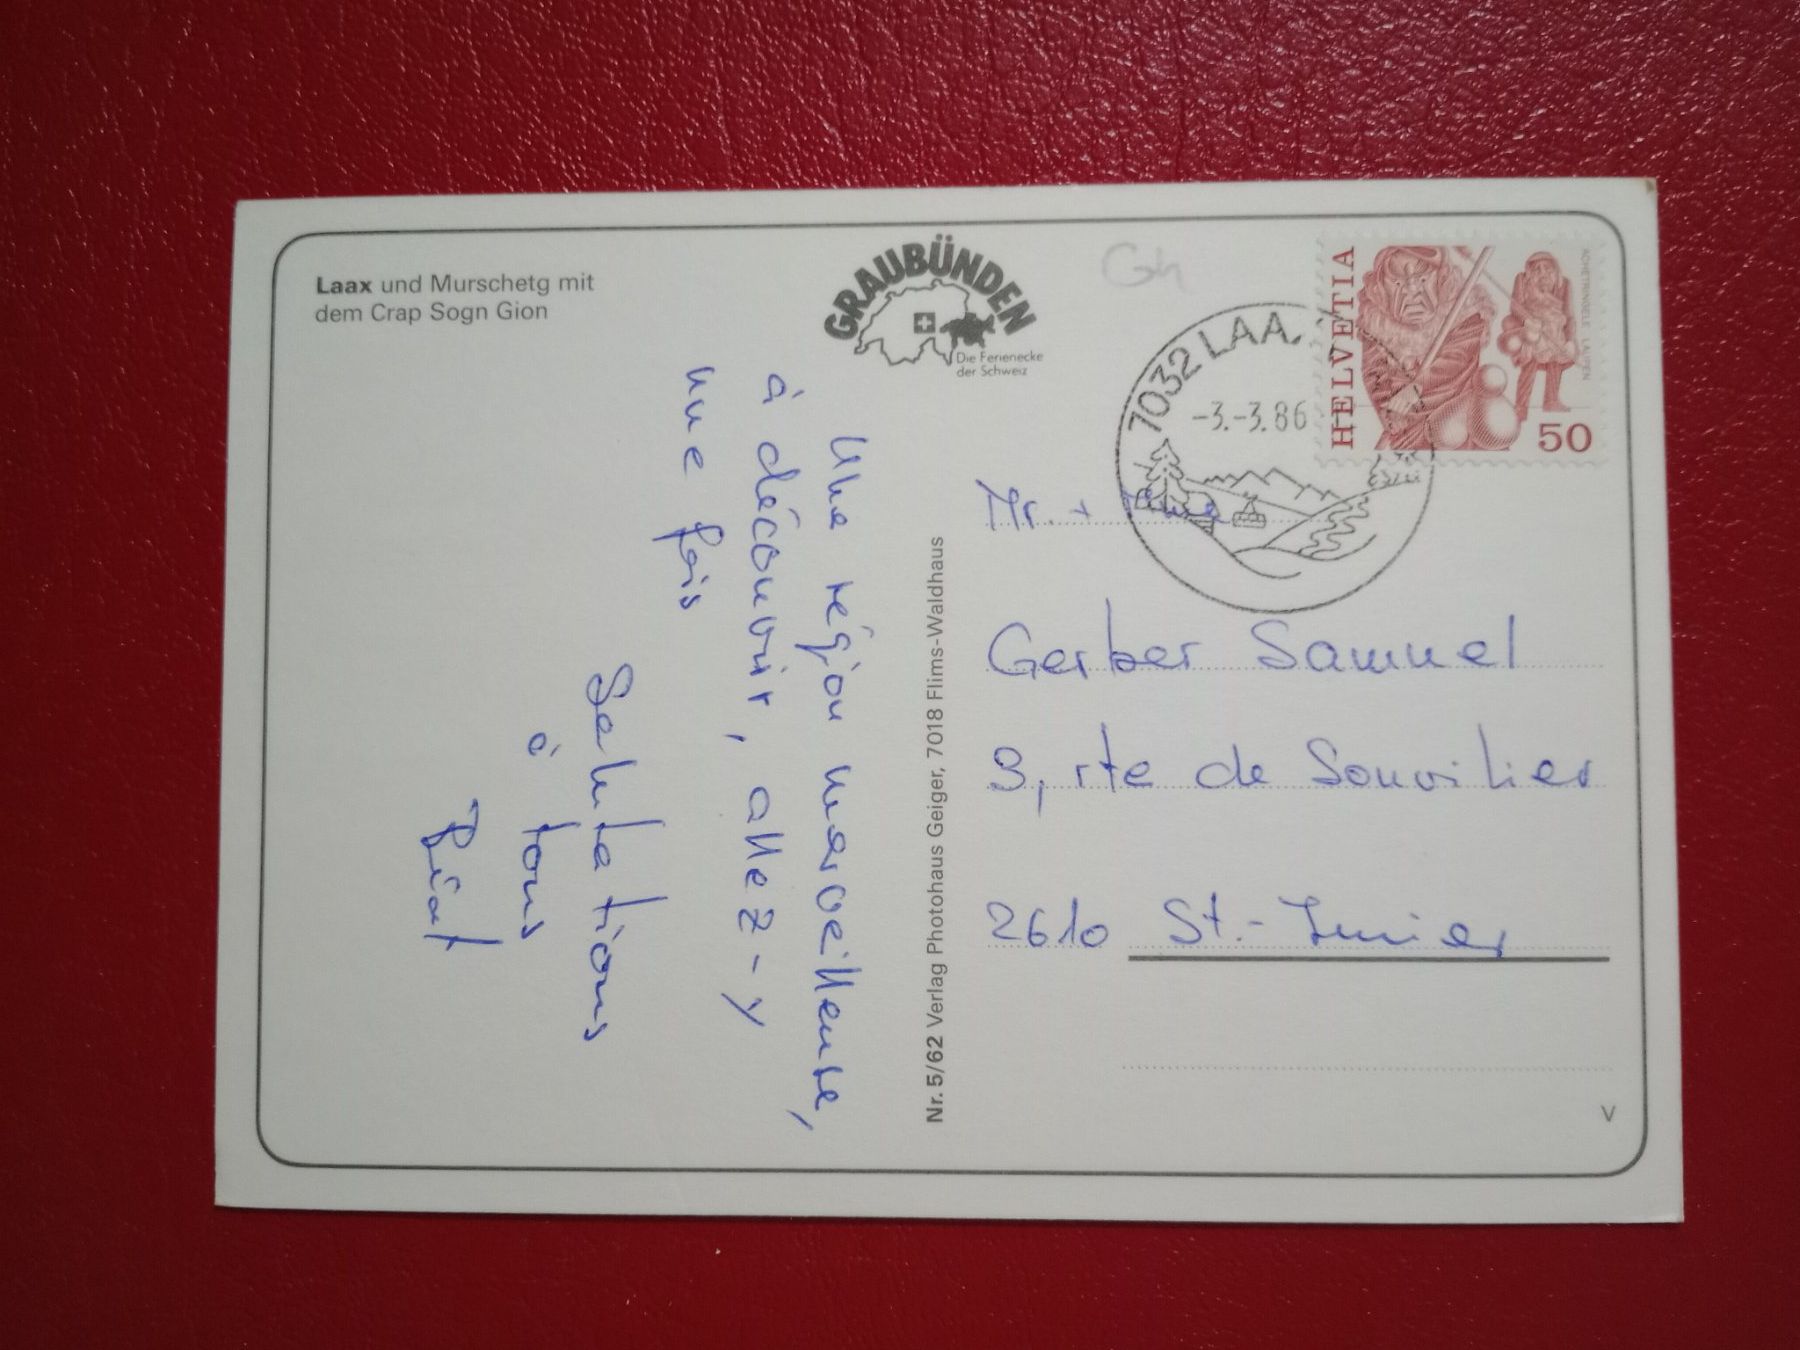 Laax und Murschetg mit
dem Crap Sogn Gion
GRAUBÜNDEN
Die Ferienecke
der Schweiz
Gh
7032 LAA
-3.-3.86
HELVETIA
ACHETRINGELE LAUPEN
50
Une région merveilleuse,
à découvrir, allez-y
une fois
Salutations
à tous
Béat
Nr. 5/62 Verlag Photohaus Geiger, 7018 Flims-Waldhaus
Mr. + Mme
Gerber Samuel
9, rte de Sonvilier
2610 St.-Imier
V